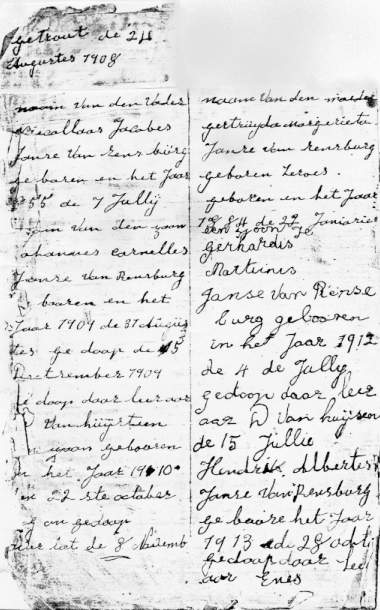 getrout de 24
Augustes 1908
naam van den Vader
Niecollaas Jacobes
Janse Van Rens burg
ge baren en het Jaar
55 de 7 Jully
naam van den zoon
Johannes Cornelles
Janse Van Rensburg
ge booren en het
Jaar 1909 de 31 Augus
tes ge doop de 15
September 1909
ge doop daar leer aar
D Van huijsteen
en zoon gebooren
in het Jaar 1910
de 22 ste october
gedoop
de 8 Novemb
naam van den moeder
gertruyda Margerieta
Janse van rensburg
geboren
geboren en het Jaar
1884 de 22 Janiaries
een zoon
Gerhardis
Martinus
Janse Van Rense
burg gebooren
in het Jaar 1912
de 4 de Jully
gedoop daar leer
aar D Van huijsen
de 15 Jullie
Hendrik Albertes
Janse Van Rensburg
ge boore het Jaar
1913 de 28
gedoop daar leer
aar